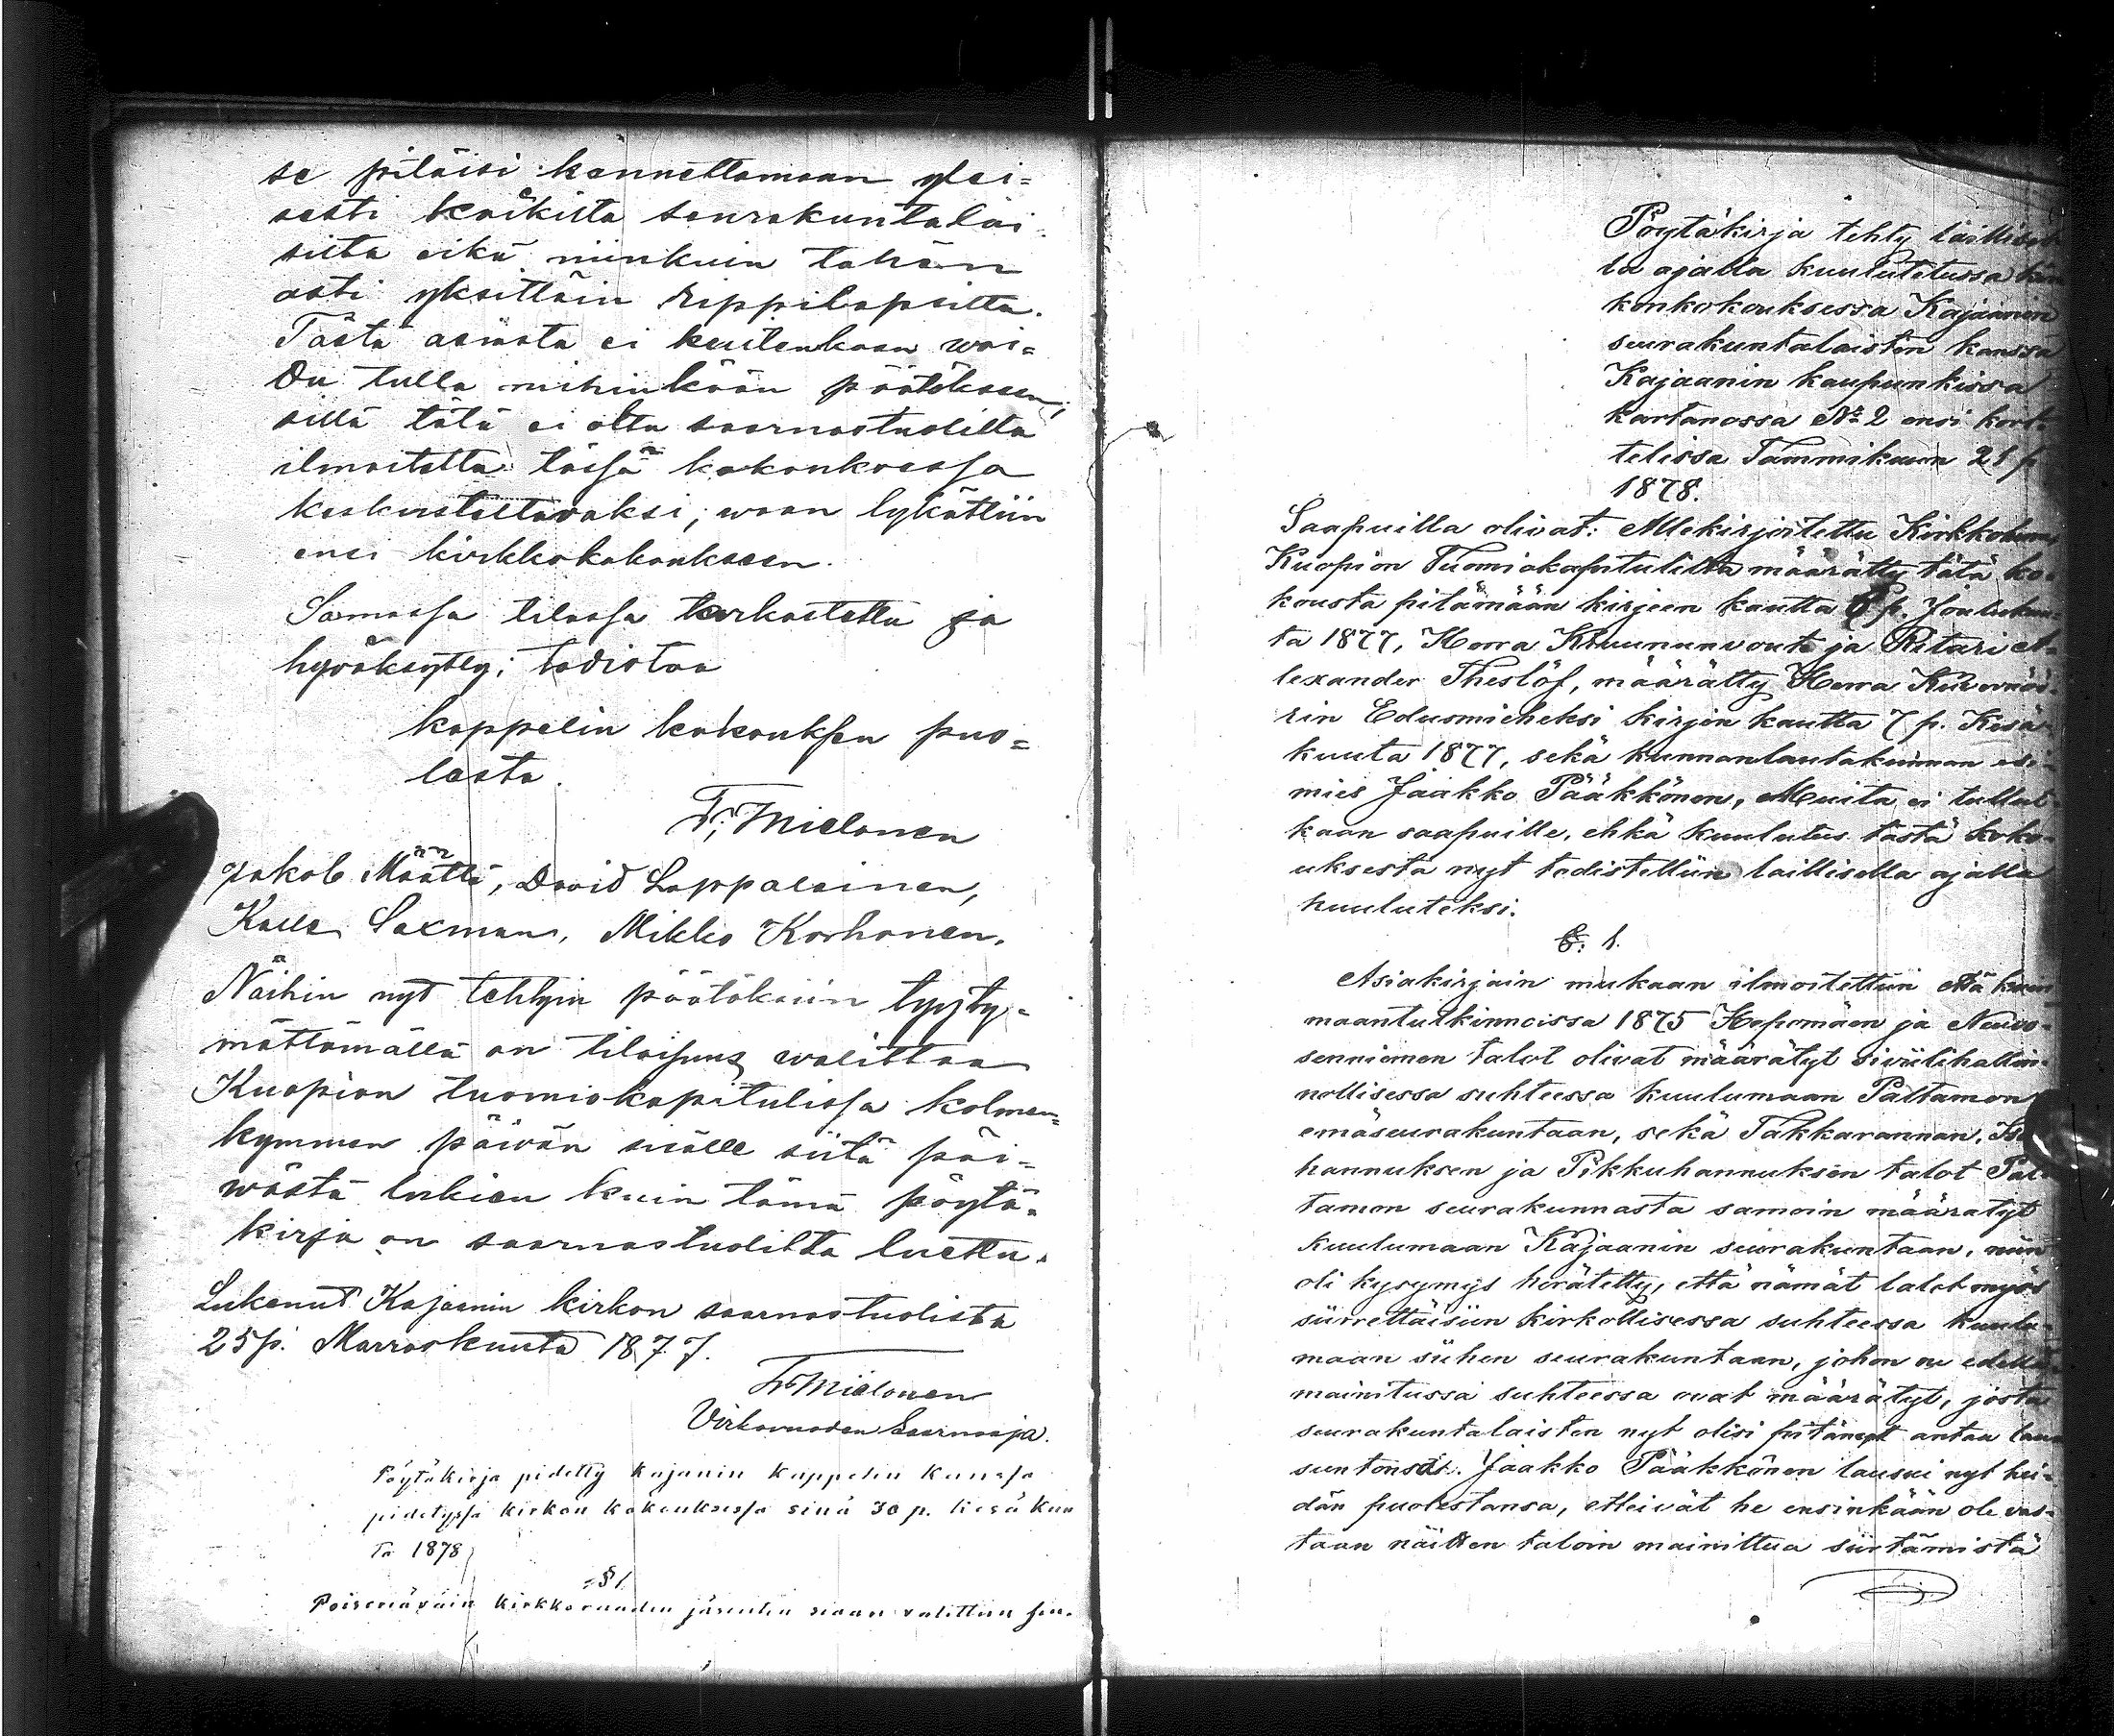 se pitäisi kannettamaan ylei=
sesti kaikilta seurakuntalai-
silta eikä niinkuin tähän
asti yksittäin rippilapsilta.
Tästä asiasta ei kuitenkaan woi=
du tulla mihinkään päätökseen,
sillä tätä ei oltu saarnastuolilta
ilmoitettu tässä kokouksessa
keskusteltavaksi, waan lykättiin
ensi kirkkokokoukseen.
Samassa tilassa tarkastettu ja
hyväksytty; todistaa
kappelin kokouksen puo=
lesta.
F. Mielonen
Jakob Määttä, David Lappalainen,
Kalle Saxman, Mikko Korhonen.
Näihin nyt tehtyin päätöksiin tyyty-
mättömällä on tilaisuus walittaa
Kuopion tuomiokapitulissa kolmen=
kymmen päivän sisälle siitä päi-
wästä lukien kuin tämä pöytä-
kirja on saarnastuolilta luettu.
Lukenut Kajaanin kirkon saarnastuolista
25 p. Marraskuuta 1877.
F. Mielonen
Virkavuoden Saarnaaja.
Pöytäkirja pidetty Kajanin Kappelin Kanssa
pidetyssä kirkon kokouksessa sinä 30 p. kesä kuu
ta 1878
§ 1
Poiseriäväin kirkkoraadin jäsenten siaan valittiin
Pöytäkirja tehty laillisel
la ajalla kuulutetussa kir
konkokouksessa Kajaanin
seurakuntalaisten kanssa
Kajaanin kaupunkissa
kartanossa № 2 ensi kort-
telissa Tammikuun 21 p
1878.
Saapuilla olivat: Allekirjoitettu Kirkkoherra,
Kuopion Tuomiokapitulilta määrätty tätä ko-
kousta pitämään kirjeen kautta 6 p. Joulukuu-
ta 1877, Herra Kruununvouti ja Ritari A-
lexander Theslöf, määrätty Herra Kuvernöö-
rin Edusmieheksi kirjen kautta 7 p. Kesä-
kuuta 1877, sekä kunnanlautakunnan esi-
mies Jaakko Pääkkönen, Muita ei tullut-
kaan saapuille, ehkä kuulutus tästä koko-
uksesta nyt todistettiin laillisella ajalla
kuuluteksi.
§. 1.
Asiakirjain mukaan ilmoitettiin että kuin
maantutkinnoissa 1875 Hepomäen ja Neuvo-
senniemen talot olivat määrätyt siviilihallin-
nollisessa suhteessa kuulumaan Paltamon
emäseurakuntaan, sekä Takkarannan, Iso
hannuksen ja Pikkuhannuksen talot Pal-
tamon seurakunnasta samoin määrätyt
kuulumaan Kajaanin seurakuntaan, niin
oli kysymys herätetty, että nämät talot myös
siirrettäisiin kirkollisessa suhteessa kuulu-
maan siihen seurakuntaan, johon ne edellä
mainitussa suhteessa ovat määrätyt, josta
seurakuntalaisten nyt olisi pitänyt antaa lau
suntonsa. Jaakko Pääkkönen lausui nyt hei-
dän puolestansa, etteivät he ensinkään ole vas-
taan näitten taloin mainittua siirtämistä